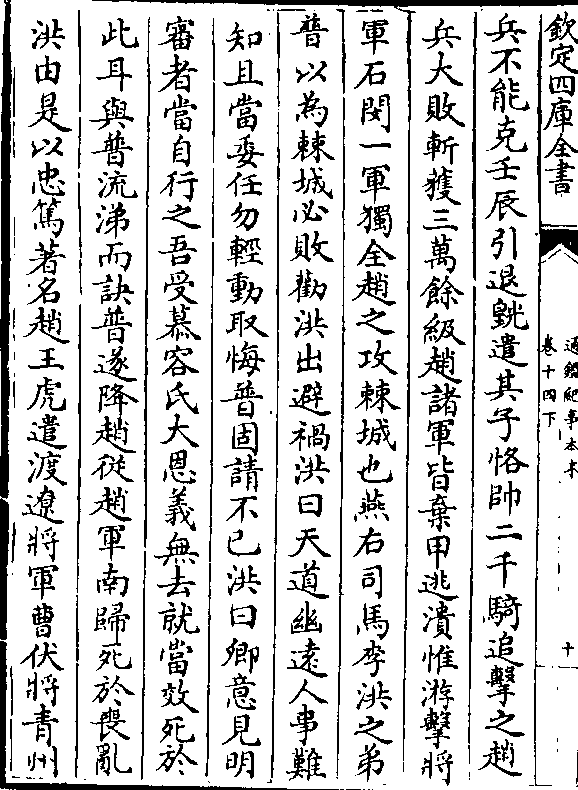 欽定四庫全書
通鑑紀事本末
卷十四下
十
兵不能克壬辰引退皝遣其子恪帥二千騎追擊之趙
兵大敗斬獲三萬餘級趙諸軍皆棄甲逃潰惟游擊將
軍石閔一軍獨全趙之攻棘城也燕右司馬李洪之弟
普以為棘城必敗勸洪出避禍洪曰天道幽遠人事難
知且當委任勿輕動取悔普固請不已洪曰卿意見明
審者當自行之吾受慕容氏大恩義無去就當效死於
此耳與普流涕而訣普遂降趙從趙軍南歸死於喪亂
洪由是以忠篤著名趙王虎遣渡遼將軍曹伏將青州